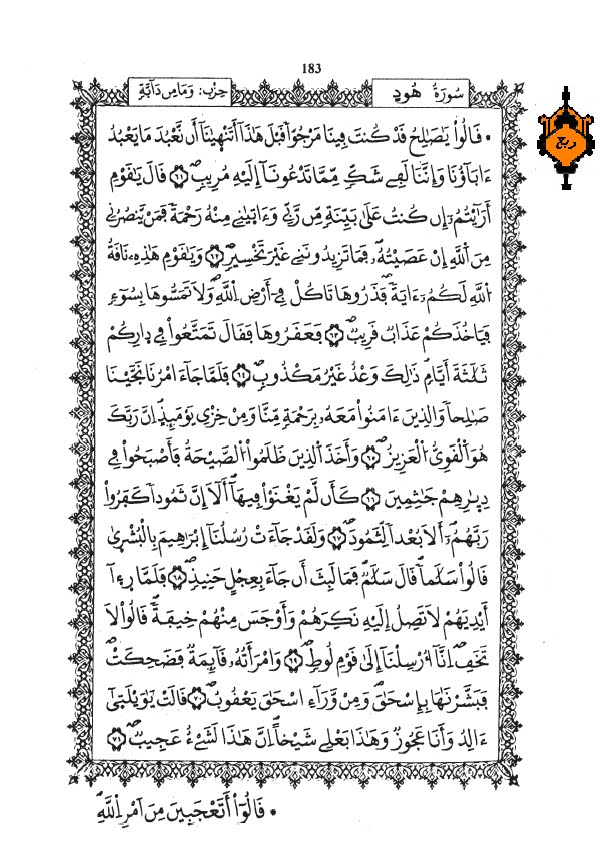 183
سُورَةُ هُودٍ
حِزْب: وَمَا مِن دَآبَّةٍ
ربع
• قَالُواْ يَٰصَٰلِحُ قَدْ كُنتَ فِينَا مَرْجُوّاً قَبْلَ هَٰذَآ أَتَنْهَيٰنَآ أَن نَّعْبُدَ مَا يَعْبُدُ
ءَابَآؤُنَا وَإِنَّنَا لَفِے شَكٍّ مِّمَّا تَدْعُونَآ إِلَيْهِ مُرِيبٍ ٦١ قَالَ يَٰقَوْمِ
أَرَٰيْتُمُۥٓ إِن كُنتُ عَلَىٰ بَيِّنَةٍ مِّن رَّبِّے وَءَاتَيٰنِے مِنْهُ رَحْمَةً فَمَنْ يَّنصُرُنِے
مِنَ اَ۬للَّهِ إِنْ عَصَيْتُهُۥ فَمَا تَزِيدُونَنِے غَيْرَ تَخْسِيرٍ ٦٢ وَيَٰقَوْمِ هَٰذِهِۦ نَاقَةُ
اُ۬للَّهِ لَكُمُۥٓ ءَايَةً فَذَرُوهَا تَاكُلْ فِےٓ أَرْضِ اِ۬للَّهِ وَلَا تَمَسُّوهَا بِسُوٓءٍ
فَيَاخُذَكُمْ عَذَابٌ قَرِيبٌ ٦٣ فَعَقَرُوهَا فَقَالَ تَمَتَّعُواْ فِے دِارِكُمْ
ثَلَٰثَةَ أَيَّامٍ ذَٰلِكَ وَعْدٌ غَيْرُ مَكْذُوبٍ ٦٤ فَلَمَّا جَآءَ امْرُنَا نَجَّيْنَا
صَٰلِحاً وَالذِينَ ءَامَنُواْ مَعَهُۥ بِرَحْمَةٍ مِّنَّا وَمِنْ خِزْيِ يَوْمَئِذٍ اِنَّ رَبَّكَ
هُوَ اَ۬لْقَوِيُّ اُ۬لْعَزِيزُ ٦٥ وَأَخَذَ اَ۬لذِينَ ظَلَمُواْ اُ۬لصَّيْحَةُ فَأَصْبَحُواْ فِے
دِيٰرِهِمْ جَٰثِمِينَ ٦٦ كَأَن لَّمْ يَغْنَوْاْ فِيهَآ أَلَآ إِنَّ ثَمُوداً كَفَرُواْ
رَبَّهُمُۥٓ أَلَا بُعْداً لِّثَمُودَ ٦٧ وَلَقَدْ جَآءَتْ رُسُلُنَآ إِبْرَٰهِيمَ بِالْبُشْرَىٰ
قَالُواْ سَلَٰماً قَالَ سَلَٰمٌ فَمَا لَبِثَ أَن جَآءَ بِعِجْلٍ حَنِيذٍ ٦٨ فَلَمَّا رِءٓا
أَيْدِيَهُمْ لَا تَصِلُ إِلَيْهِ نَكِرَهُمْ وَأَوْجَسَ مِنْهُمْ خِيفَةً قَالُواْ لَا
تَخَفِ اِنَّآ أُرْسِلْنَآ إِلَىٰ قَوْمِ لُوطٍ ٦٩ وَامْرَأَتُهُۥ قَآئِمَةٌ فَضَحِكَتْ
فَبَشَّرْنَٰهَا بِإِسْحَٰقَ وَمِنْ وَّرَآءِ اِسْحَٰقَ يَعْقُوبُ ٧٠ قَالَتْ يَٰوَيْلَتَىٰٓ
ءَالِدُ وَأَنَا عَجُوزٌ وَهَٰذَا بَعْلِے شَيْخاً اِنَّ هَٰذَا لَشَےْءٌ عَجِيبٌ ٧١
• قَالُوٓاْ أَتَعْجَبِينَ مِنَ اَمْرِ اِ۬للَّهِ